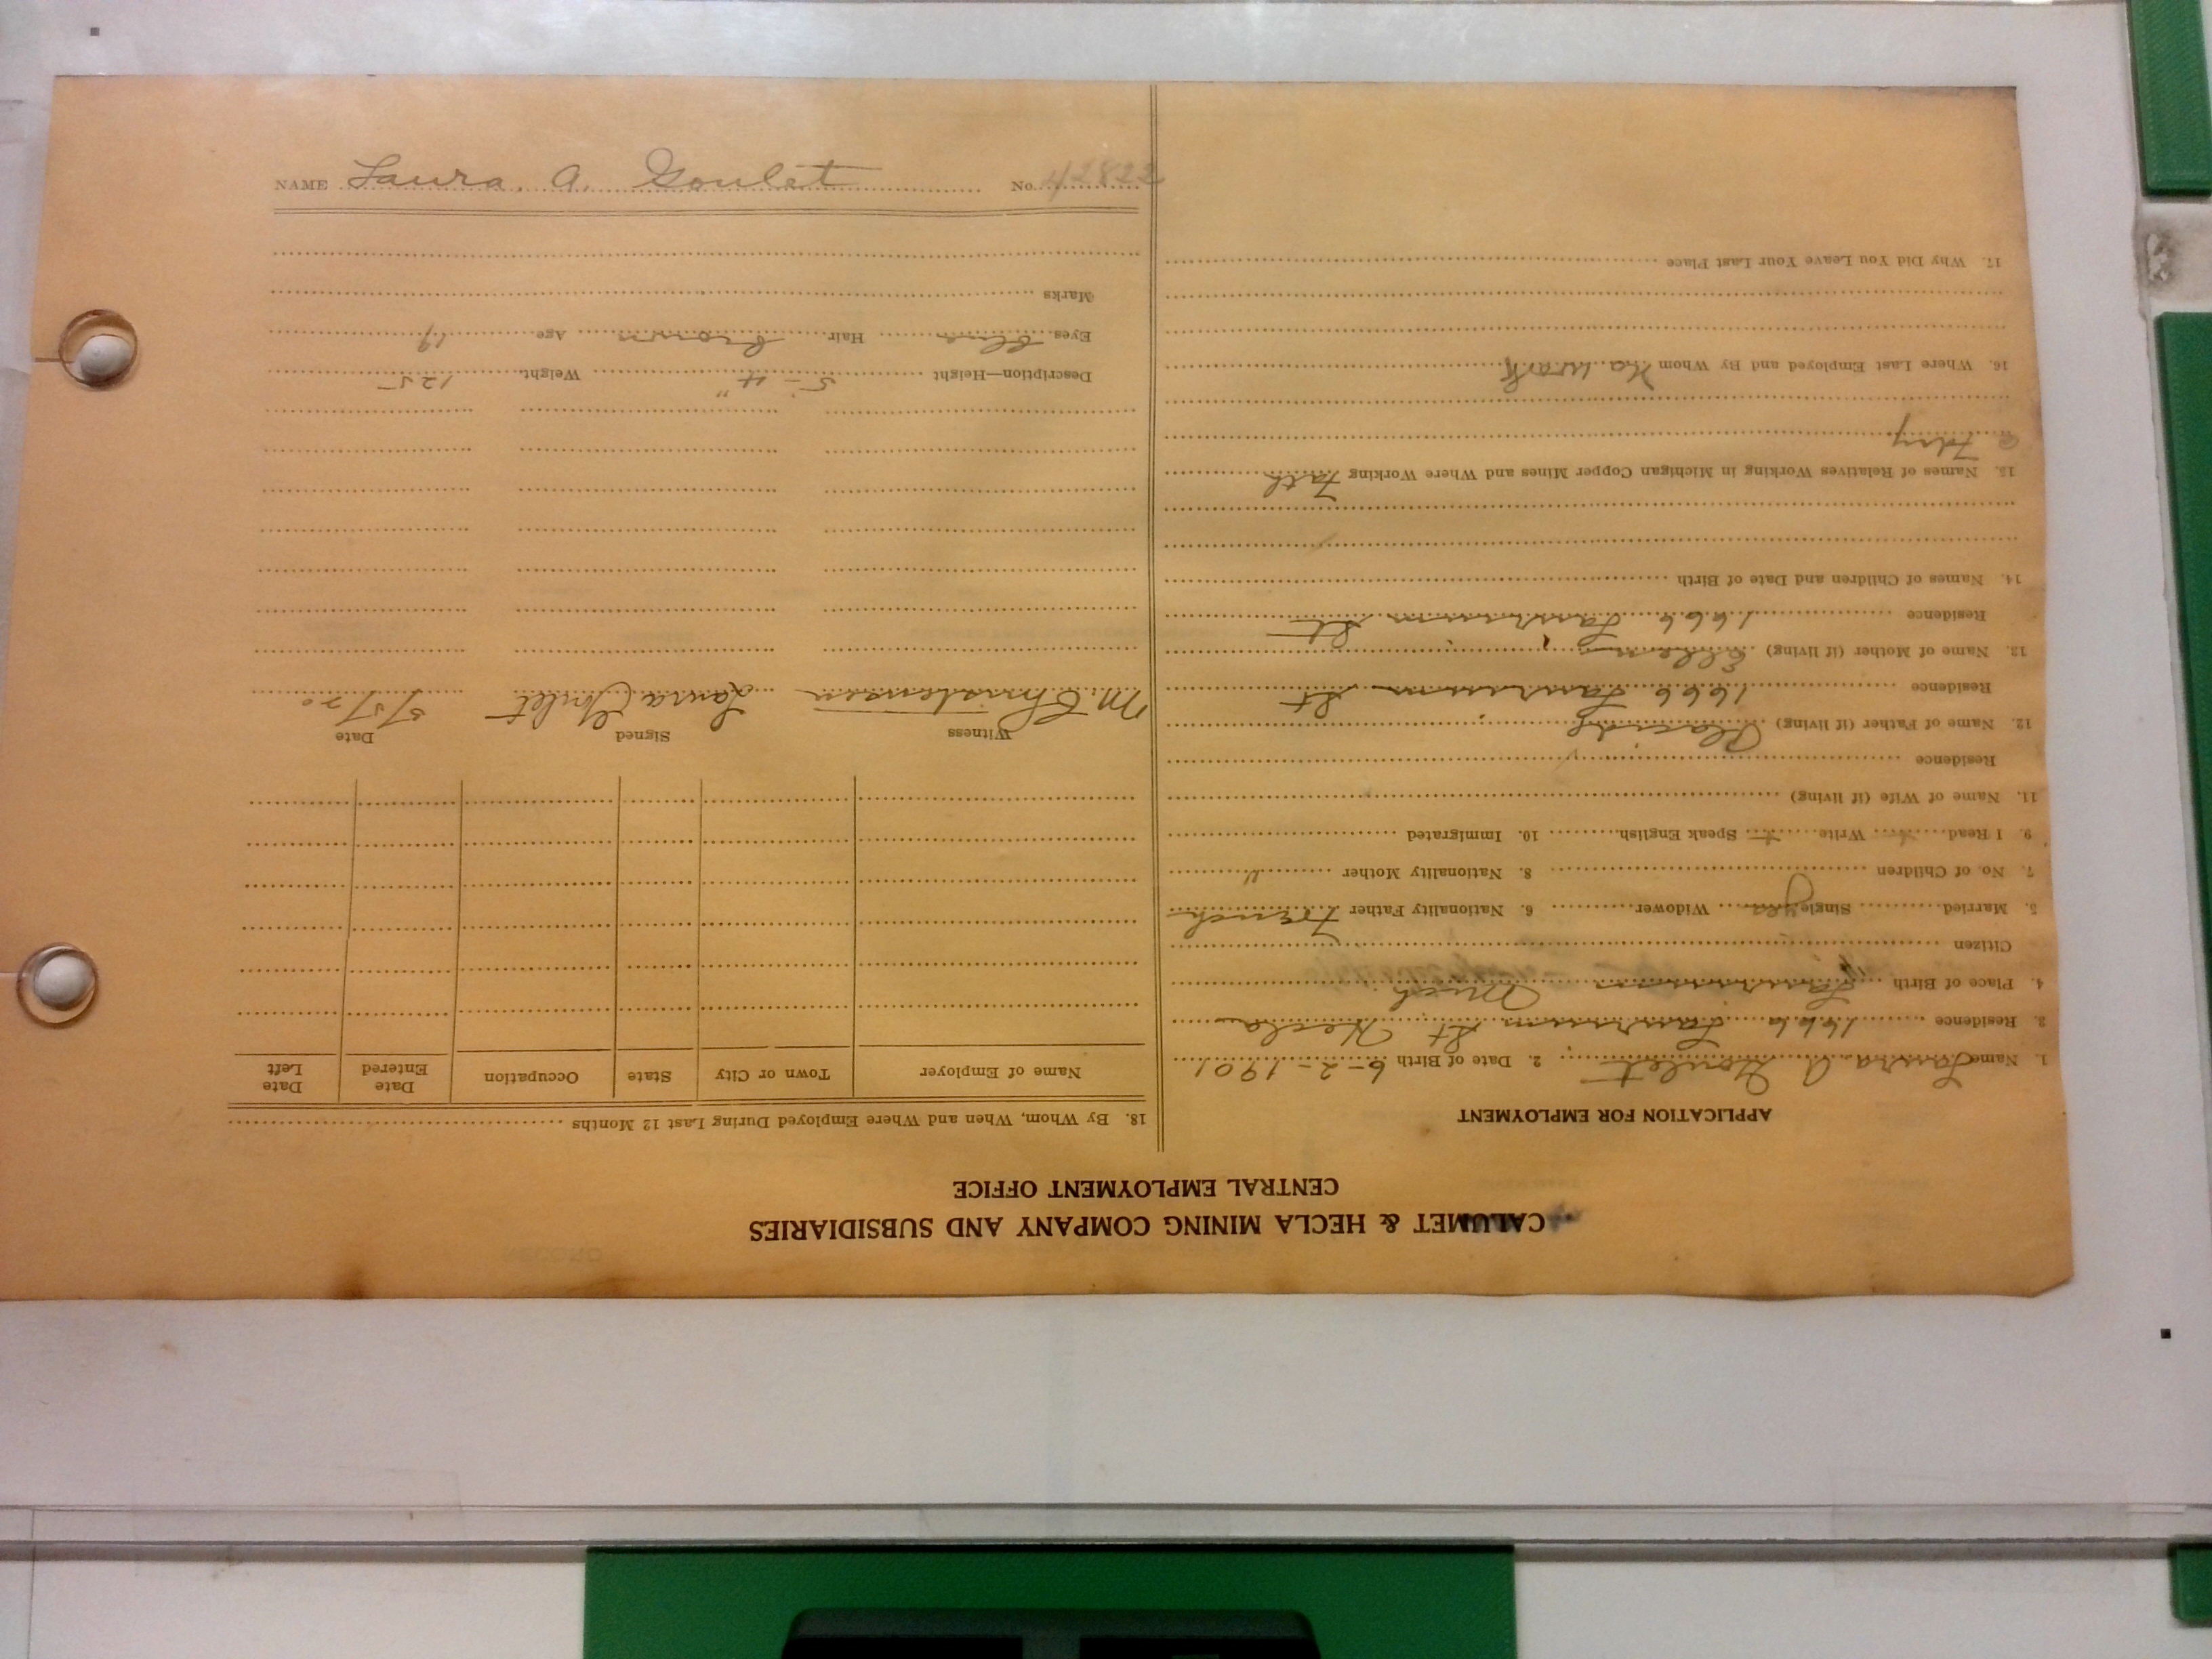 CALUMET & HECLA MINING COMPANY AND SUBSIDIARIES
CENTRAL EMPLOYMENT OFFICE
APPLICATION FOR EMPLOYMENT
1. Name Laura A Goulet 2. Date of Birth 6-2-1901
3. Residence 1666 Laurium St. Hecla
4. Place of Birth Laurium Mich
Citizen
5. Married Single yes Widower 6. Nationality Father French
7. No. of Children 8. Nationality Mother "
9. I Read Write Speak English 10. Immigrated
11. Name of Wife (if living)
Residence
12. Name of Father (if living) Placide
Residence 1666 Laurium St
13. Name of Mother (if living) Ellen
Residence 1666 Laurium St
14. Names of Children and Date of Birth
15. Names of Relatives Working in Michigan Copper Mines and Where Working Fath
Fdry
16. Where Last Employed and By Whom Na Work
17. Why Did You Leave Your Last Place
18. By Whom, When and Where Employed During Last 12 Months
Name of Employer Town or City State Occupation Date Entered Date Left
Witness Signed Date
M. Christensen Laura Goulet 5/5/20
Description—Height 5'-4" Weight 125
Eyes Blue Hair Brown Age 19
Marks
NAME Laura. A. Goulet No. 42822